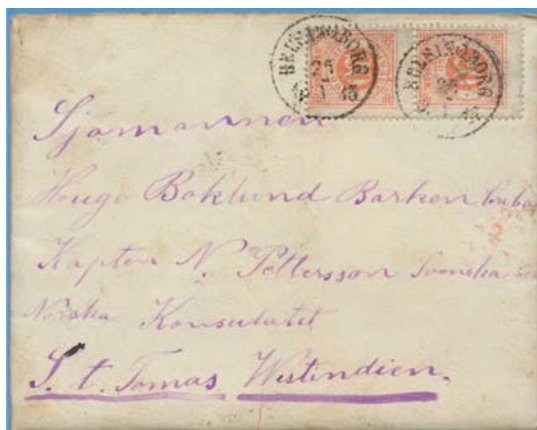 HELSINGBORG HELSINGBORG
20 20
Sjömannen
Hugo Boklund Barken Cuba
Kapten N. Pettersson Svenska
Norska Konsulatet
S. t. Tomas Westindien.